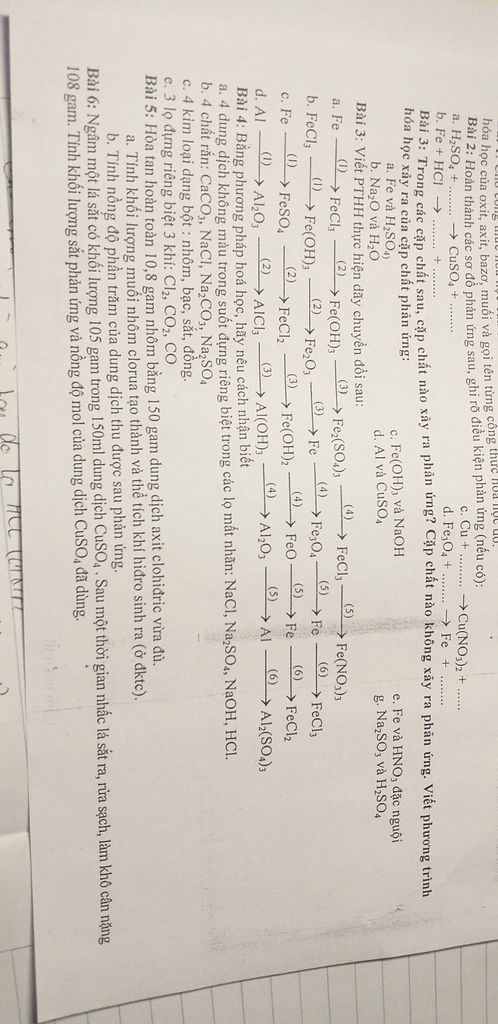 hóa học của oxit, axit, bazơ, muối và gọi tên từng công thức hóa học đó.
Bài 2: Hoàn thành các sơ đồ phản ứng sau, ghi rõ điều kiện phản ứng (nếu có):
a. H₂SO₄ + ........ → CuSO₄ + ........
c. Cu + ......... → Cu(NO₃)₂ + ......
b. Fe + HCl → ........ + ........
d. Fe₃O₄ + ........ → Fe + ........
Bài 3: Trong các cặp chất sau, cặp chất nào xảy ra phản ứng? Cặp chất nào không xảy ra phản ứng. Viết phương trình
hóa học xảy ra của cặp chất phản ứng:
a. Fe và H₂SO₄
c. Fe(OH)₃ và NaOH
e. Fe và HNO₃ đặc nguội
b. Na₂O và H₂O
d. Al và CuSO₄
g. Na₂SO₃ và H₂SO₄
Bài 3: Viết PTHH thực hiện dãy chuyển đổi sau:
a. Fe —(1)→ FeCl₃ —(2)→ Fe(OH)₃ —(3)→ Fe₂(SO₄)₃ —(4)→ FeCl₃ —(5)→ Fe(NO₃)₃
b. FeCl₃ —(1)→ Fe(OH)₃ —(2)→ Fe₂O₃ —(3)→ Fe —(4)→ Fe₃O₄ —(5)→ Fe —(6)→ FeCl₃
c. Fe —(1)→ FeSO₄ —(2)→ FeCl₂ —(3)→ Fe(OH)₂ —(4)→ FeO —(5)→ Fe —(6)→ FeCl₂
d. Al —(1)→ Al₂O₃ —(2)→ AlCl₃ —(3)→ Al(OH)₃ —(4)→ Al₂O₃ —(5)→ Al —(6)→ Al₂(SO₄)₃
Bài 4: Bằng phương pháp hoá học, hãy nêu cách nhận biết
a. 4 dung dịch không màu trong suốt đựng riêng biệt trong các lọ mất nhãn: NaCl, Na₂SO₄, NaOH, HCl.
b. 4 chất rắn: CaCO₃, NaCl, Na₂CO₃, Na₂SO₄
c. 4 kim loại dạng bột : nhôm, bạc, sắt, đồng.
e. 3 lọ đựng riêng biệt 3 khí: Cl₂, CO₂, CO
Bài 5: Hòa tan hoàn toàn 10,8 gam nhôm bằng 150 gam dung dịch axit clohiđric vừa đủ.
a. Tính khối lượng muối nhôm clorua tạo thành và thể tích khí hiđro sinh ra (ở đktc).
b. Tính nồng độ phần trăm của dung dịch thu được sau phản ứng.
Bài 6: Ngâm một lá sắt có khối lượng 105 gam trong 150ml dung dịch CuSO₄ . Sau một thời gian nhấc lá sắt ra, rửa sạch, làm khô cân nặng
108 gam. Tính khối lượng sắt phản ứng và nồng độ mol của dung dịch CuSO₄ đã dùng.